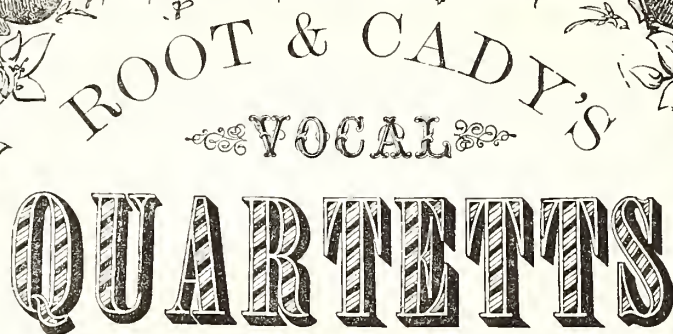 ROOT & CADY'S
VOCAL
QUARTETTS